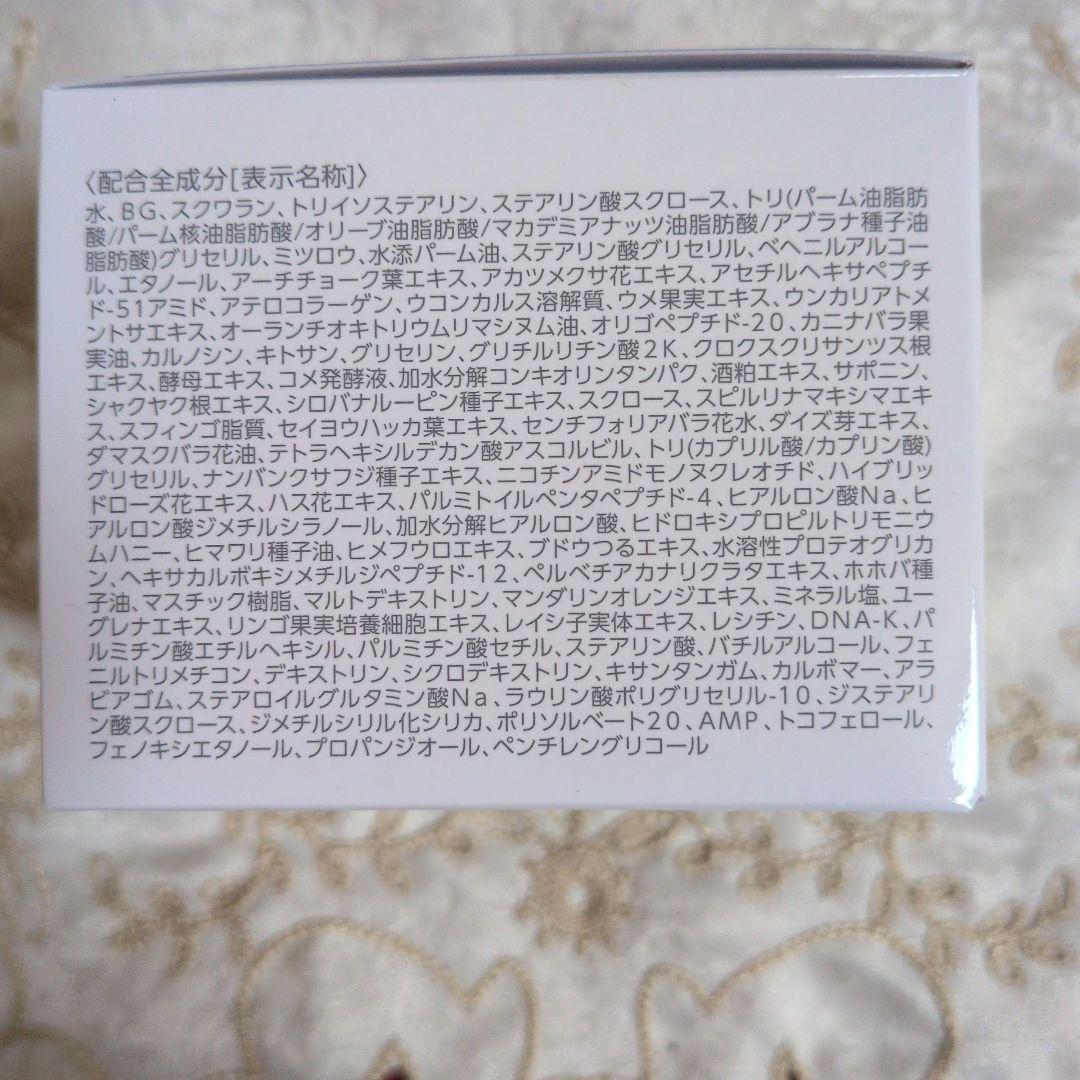 〈配合全成分[表示名称]〉
水、BG、スクワラン、トリイソステアリン、ステアリン酸スクロース、トリ(パーム油脂肪
酸/パーム核油脂肪酸/オリーブ油脂肪酸/マカデミアナッツ油脂肪酸/アブラナ種子油
脂肪酸)グリセリル、ミツロウ、水添パーム油、ステアリン酸グリセリル、ベヘニルアルコー
ル、エタノール、アーチチョーク葉エキス、アカツメクサ花エキス、アセチルヘキサペプチ
ド-51アミド、アテロコラーゲン、ウコンカルス溶解質、ウメ果実エキス、ウンカリアトメ
ントサエキス、オーランチオキトリウムリマシヌム油、オリゴペプチド-20、カニナバラ果
実油、カルノシン、キトサン、グリセリン、グリチルリチン酸2K、クロクスクリサンツス根
エキス、酵母エキス、コメ発酵液、加水分解コンキオリンタンパク、酒粕エキス、サポニン、
シャクヤク根エキス、シロバナルーピン種子エキス、スクロース、スピルリナマキシマエキ
ス、スフィンゴ脂質、セイヨウハッカ葉エキス、センチフォリアバラ花水、ダイズ芽エキス、
ダマスクバラ花油、テトラヘキシルデカン酸アスコルビル、トリ(カプリル酸/カプリン酸)
グリセリル、ナンバンクサフジ種子エキス、ニコチンアミドモノヌクレオチド、ハイブリッ
ドローズ花エキス、ハス花エキス、パルミトイルペンタペプチド-4、ヒアルロン酸Na、ヒ
アルロン酸ジメチルシラノール、加水分解ヒアルロン酸、ヒドロキシプロピルトリモニウ
ムハニー、ヒマワリ種子油、ヒメフウロエキス、ブドウつるエキス、水溶性プロテオグリカ
ン、ヘキサカルボキシメチルジペプチド-12、ペルベチアカナリクラタエキス、ホホバ種
子油、マスチック樹脂、マルトデキストリン、マンダリンオレンジエキス、ミネラル塩、ユー
グレナエキス、リンゴ果実培養細胞エキス、レイシ子実体エキス、レシチン、DNA-K、パ
ルミチン酸エチルヘキシル、パルミチン酸セチル、ステアリン酸、バチルアルコール、フェ
ニルトリメチコン、デキストリン、シクロデキストリン、キサンタンガム、カルボマー、アラ
ビアゴム、ステアロイルグルタミン酸Na、ラウリン酸ポリグリセリル-10、ジステアリ
ン酸スクロース、ジメチルシリル化シリカ、ポリソルベート20、AMP、トコフェロール、
フェノキシエタノール、プロパンジオール、ペンチレングリコール